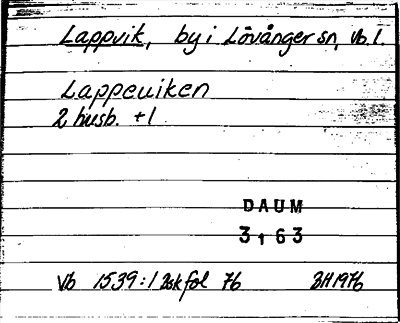 Lappvik, by i Lövånger sn, Vb. l.
Lappeuiken
2 husb. + l
DAUM
3163
Vb 1539:1 Zskfol 76 BH1976